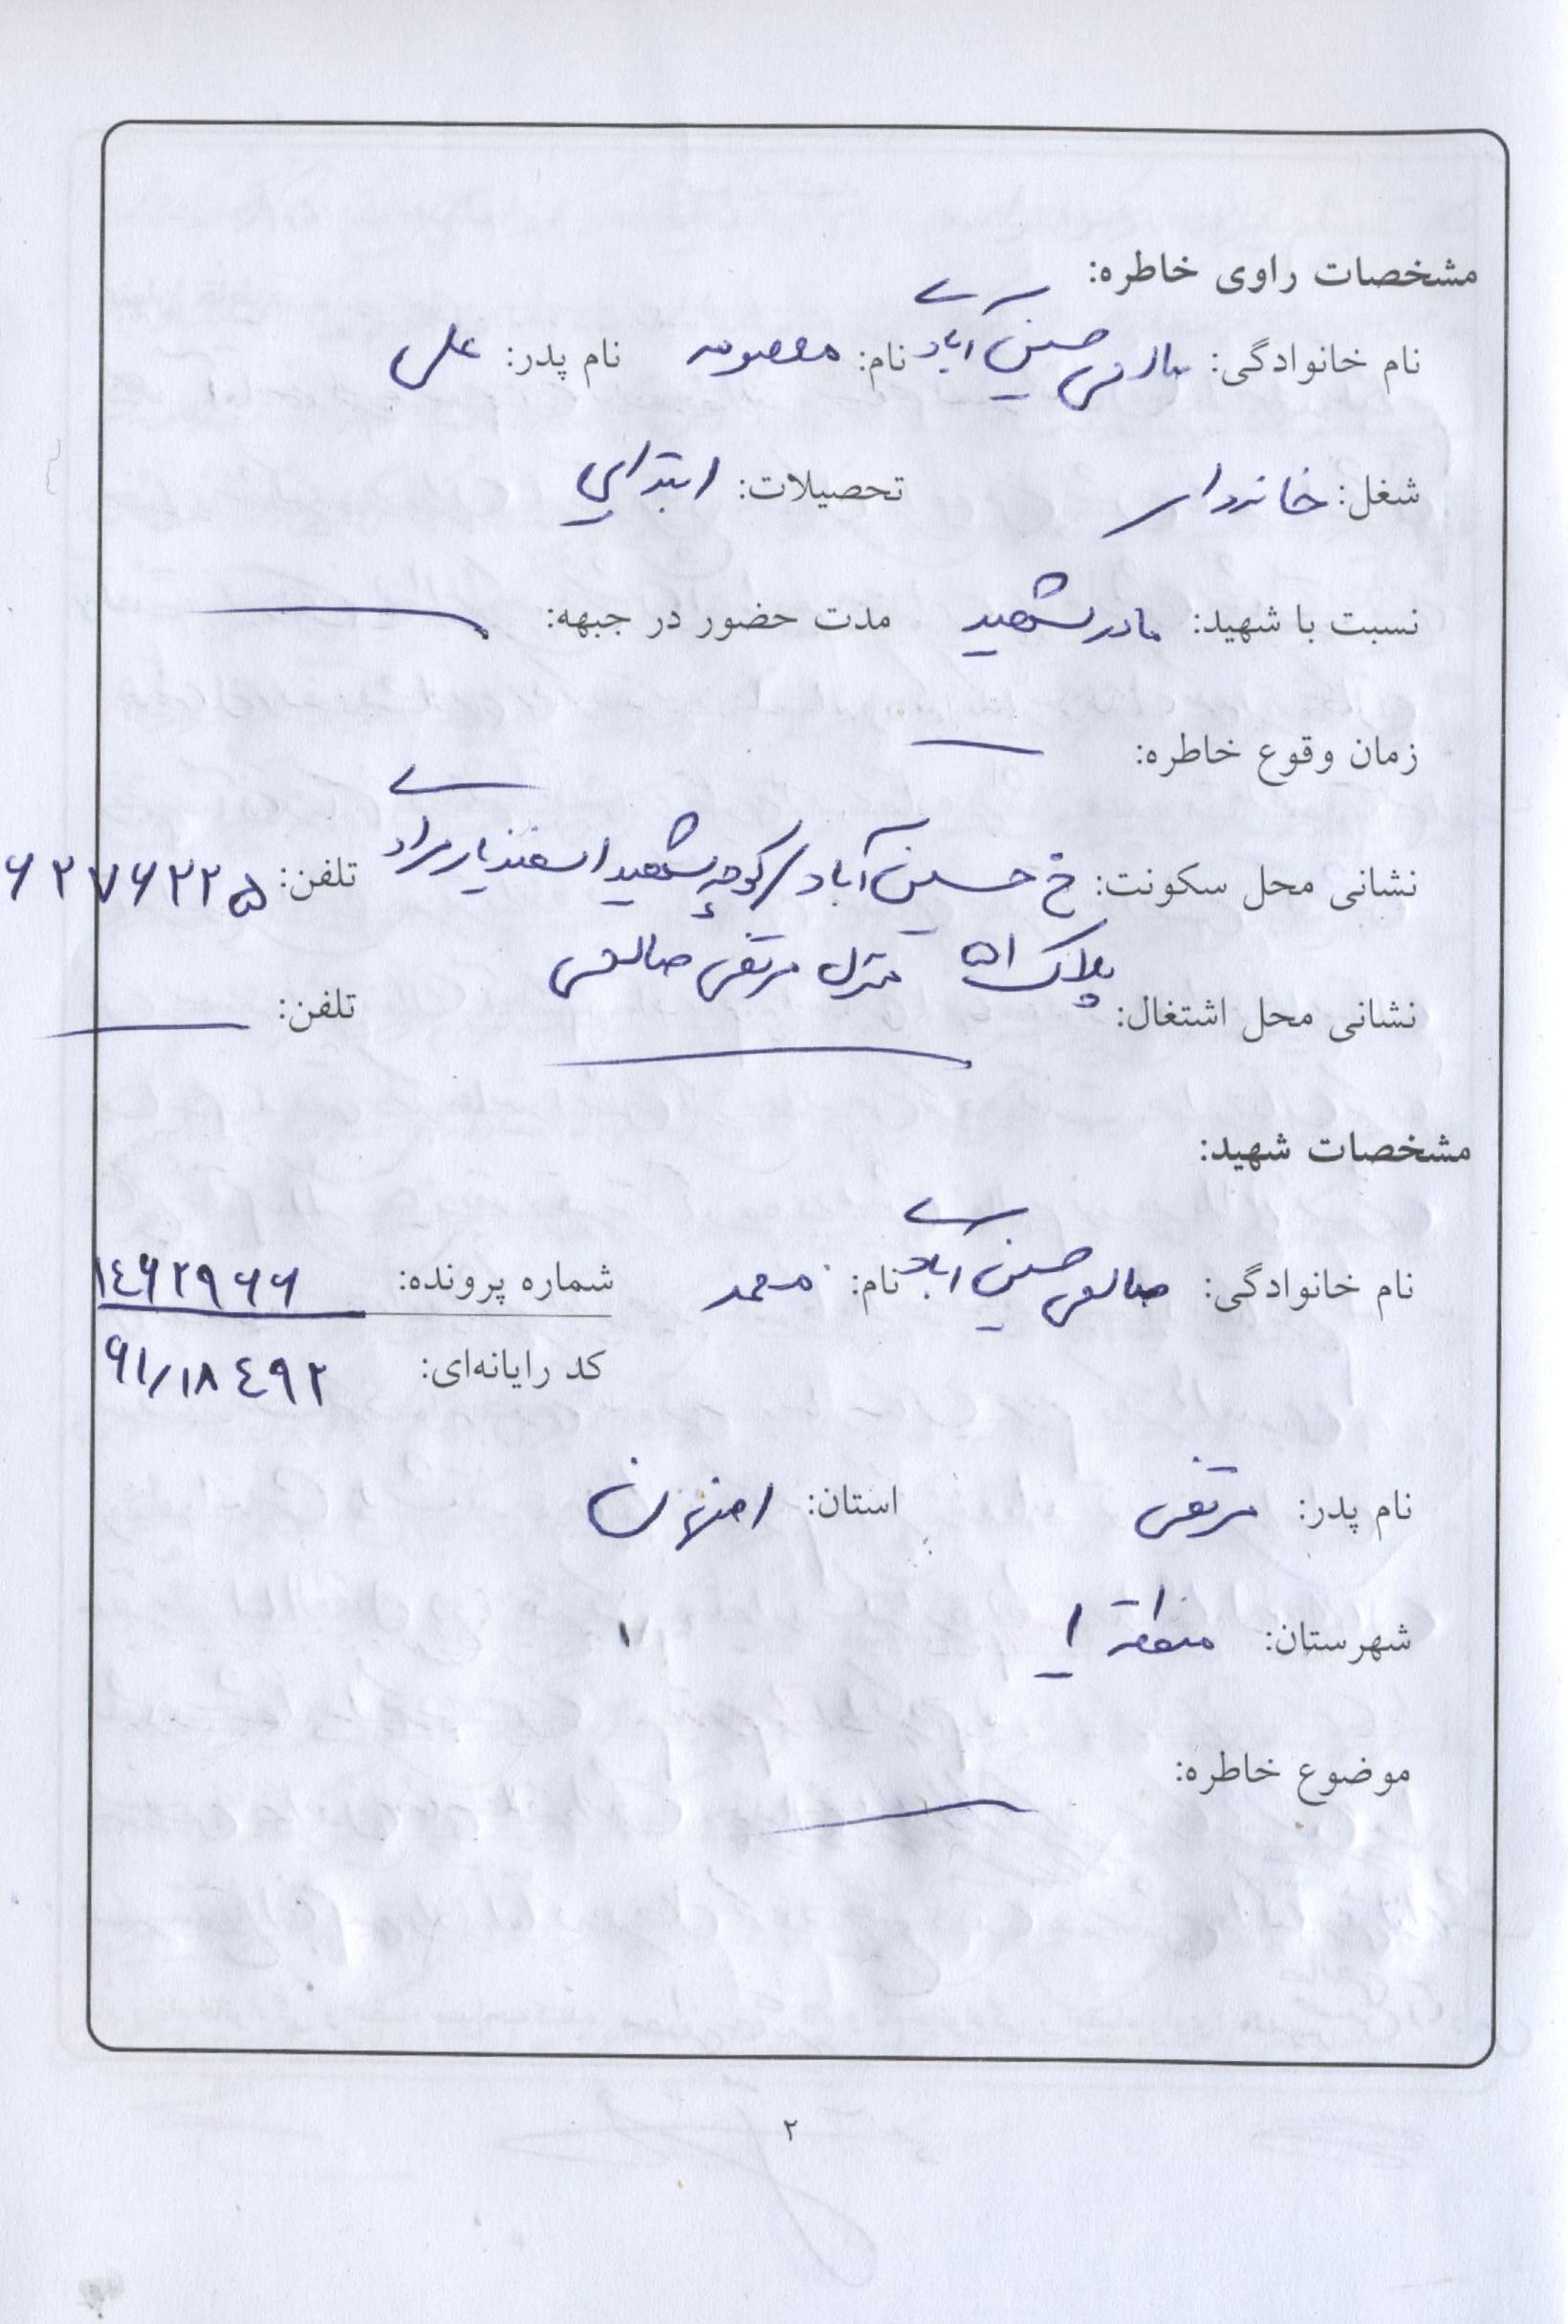 مشخصات راوی خاطره:
نام خانوادگی: صالحی حسین آبادی نام: معصومه نام پدر: علی
شغل: خانه دار تحصیلات: ابتدایی
نسبت با شهید: مادر شهید مدت حضور در جبهه:
زمان وقوع خاطره:
نشانی محل سکونت: خ حسین آباد / کوچه شهید اسفندیار مرادی تلفن: ۶۲۷۶۲۲۵
پلاک ۵۱ منزل مرتضی صالحی
نشانی محل اشتغال: تلفن:
مشخصات شهید:
نام خانوادگی: صالحی حسین آبادی نام: محمد شماره پرونده: ۱۴۶۲۹۶۶
کد رایانه‌ای: ۶۱/۱۸۴۹۲
نام پدر: مرتضی استان: اصفهان
شهرستان: منطقه ۱
موضوع خاطره:
۲